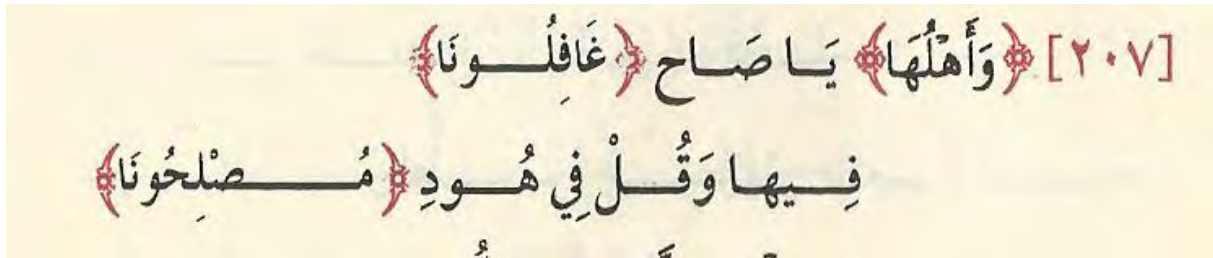 [٢٠٧] ﴿وَأَهْلُهَا﴾ يَا صَاحِ ﴿غَافِلُونَا﴾
فِيهَا وَقُلْ فِي هُودِ ﴿مُصْلِحُونَا﴾